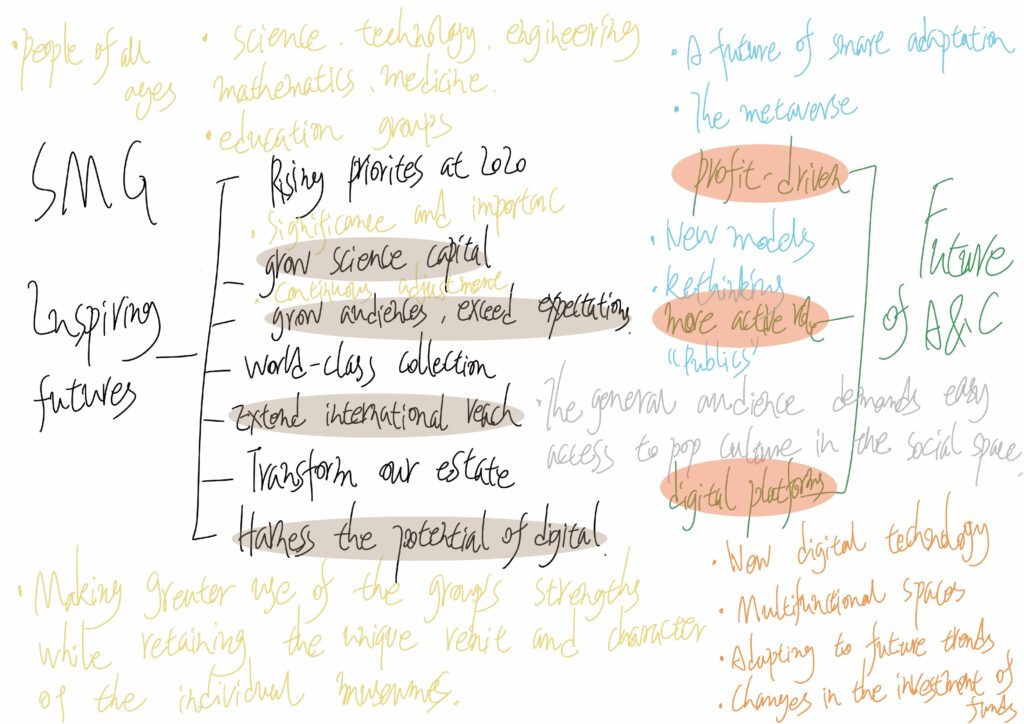 • people of all
ages
• science, technology, engineering
mathematics, medicine.
• education groups
SMG
Inspiring
futures
Rising priorites at 2020
• Significance and importanc
grow science capital
• Continuous adjustment
grow audiences, exceed expectations.
World-class collection
Extend international reach
Transform our estate
Harness the potential of digital.
• Making greater use of the group's strengths
while retaining the unique remit and character
of the individual museums.
• A future of smare adaptation
• The metaverse
profit-driven
• New models
• Rethinking
more active role
"Publics"
Future
of A&C
• The general audience demands easy
access to pop culture in the social space,
digital platforms
• New digital technology
• Multifunctional spaces
• Adapting to future trends
• Changes in the investment of
funds